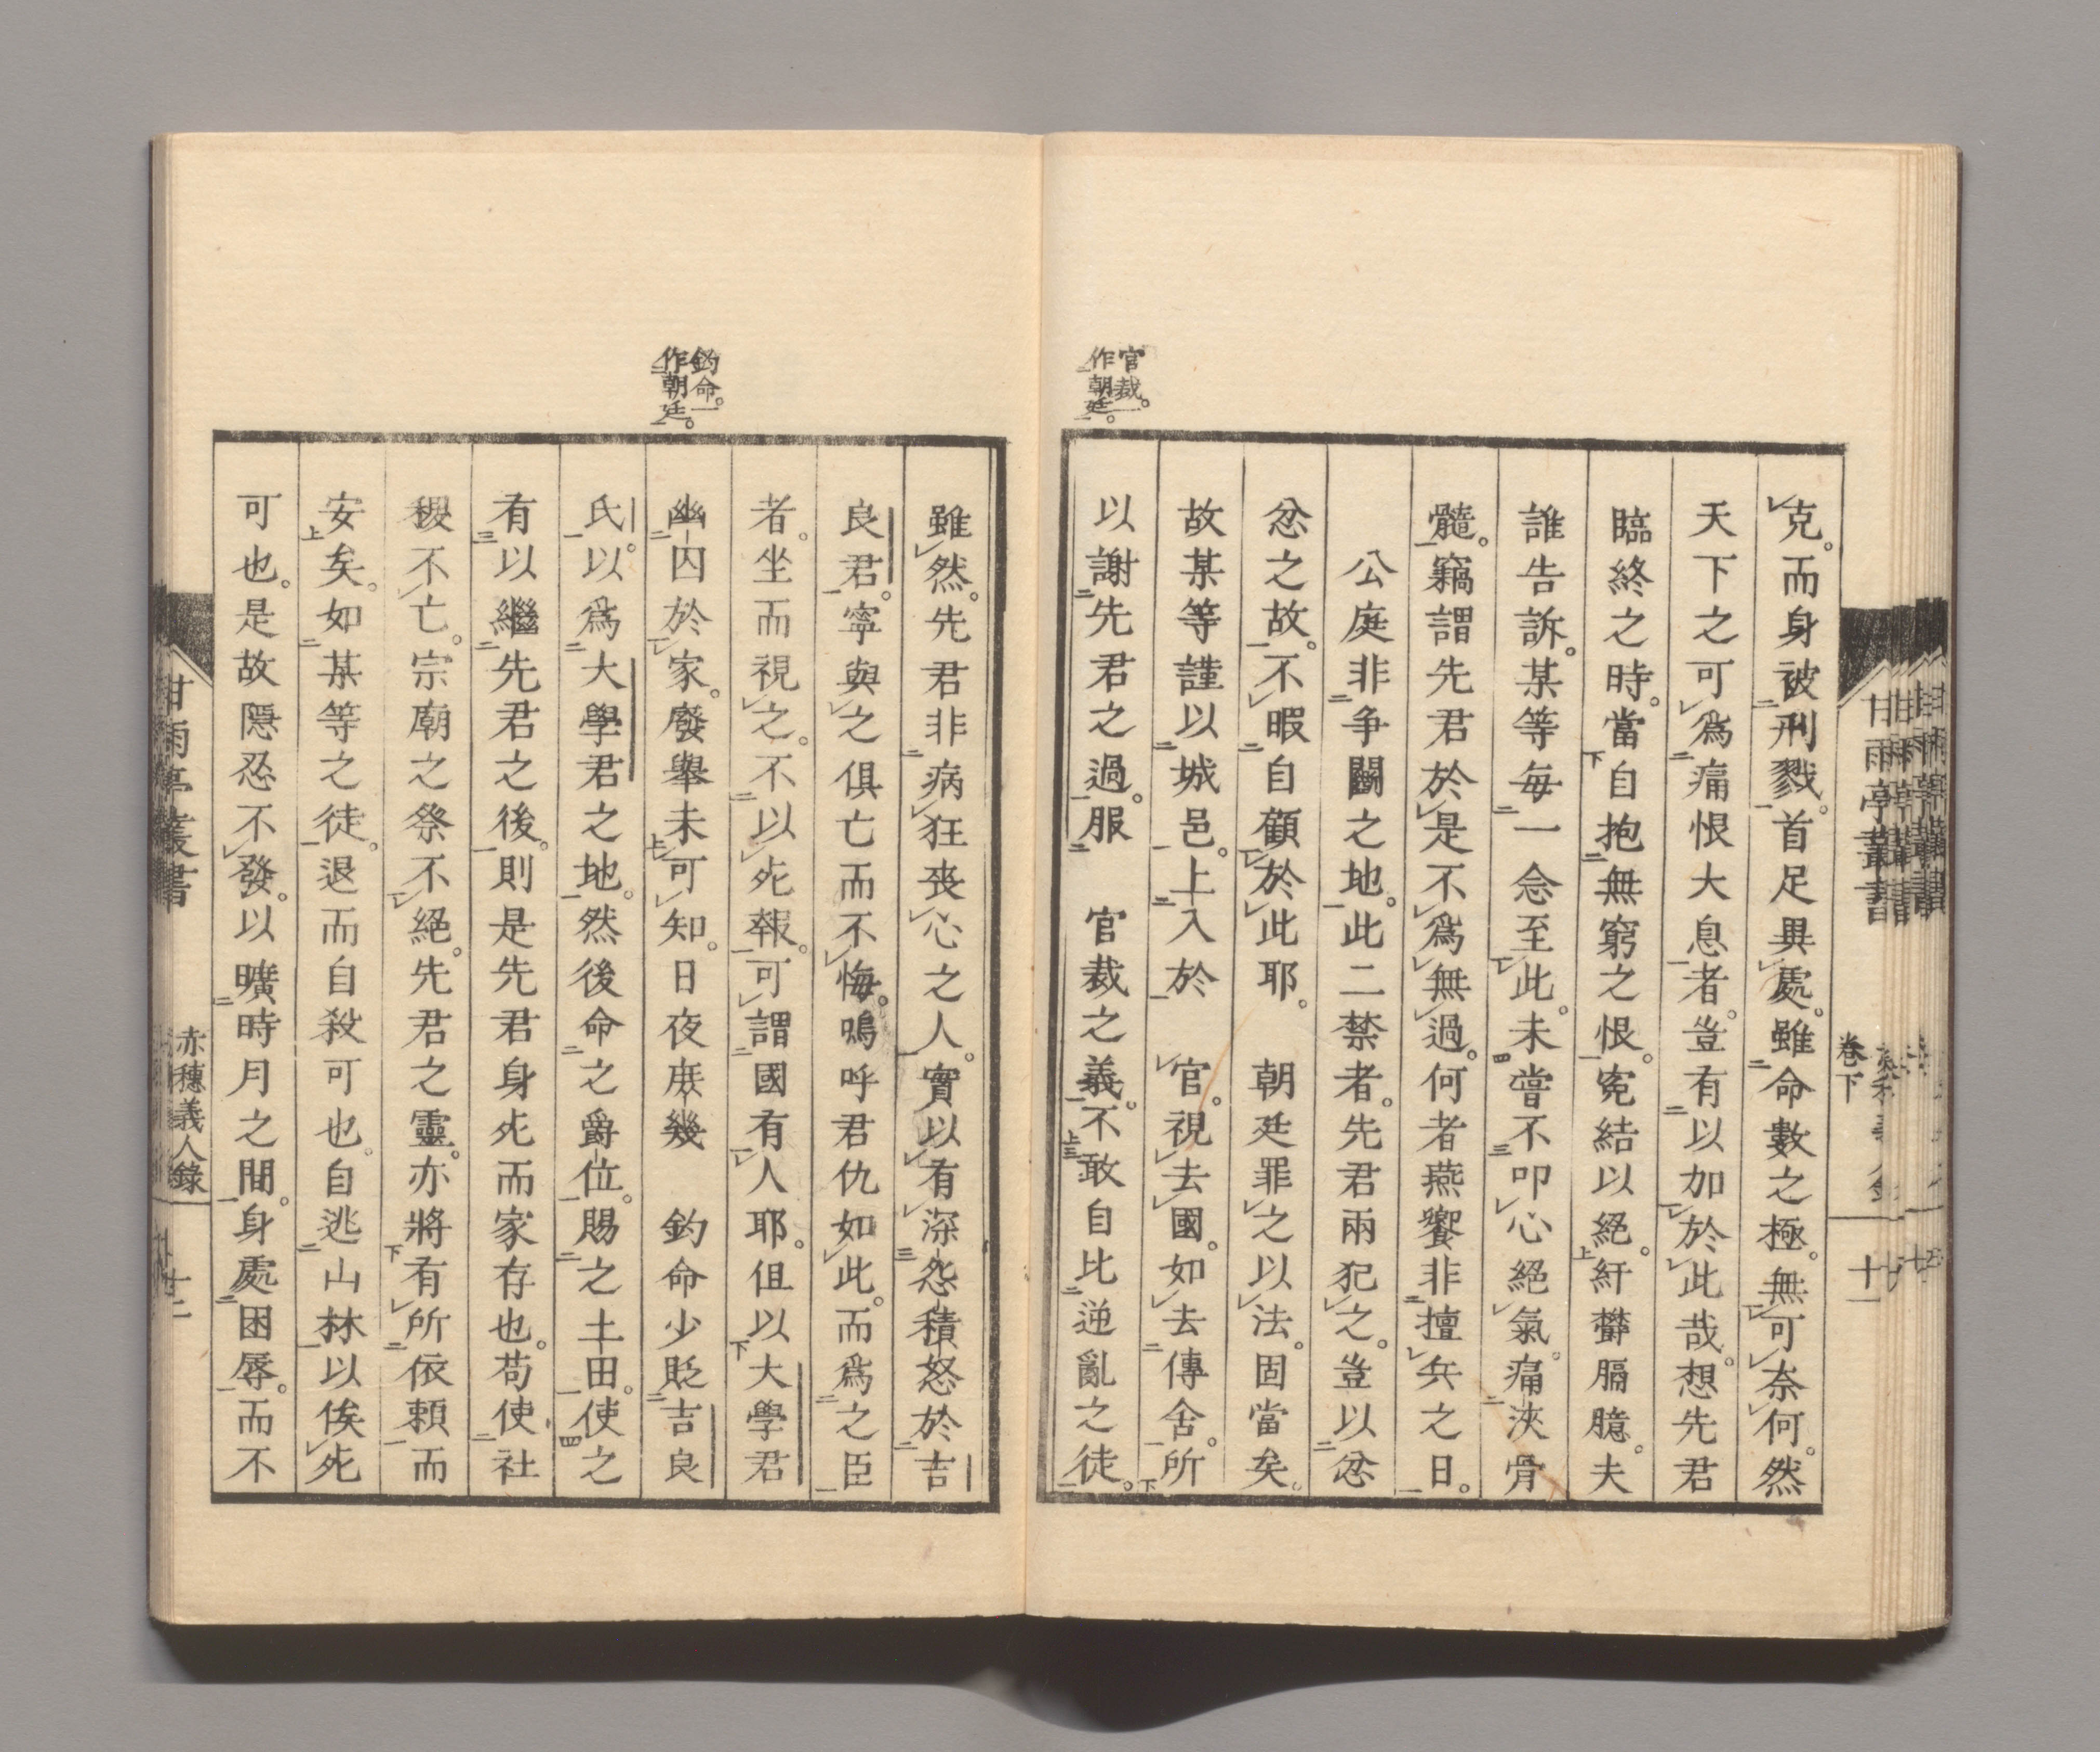 克。而身被刑戮。首足異處。雖命數之極。無可奈何。然
天下之可爲痛恨大息者。豈有以加於此哉。想先君
臨終之時。當自抱無窮之恨。寃結以絕。紆欝膈臆。夫
誰告訴。某等每一念至此。未嘗不叩心絕氣。痛浹骨
髓。竊謂先君於是不爲無過。何者燕饗非擅兵之日。
公庭非争鬭之地。此二禁者。先君兩犯之。豈以忿
忿之故。不暇自顧於此耶。朝廷罪之以法。固當矣。
故某等謹以城邑。上入於官。視去國。如去傳舍。所
以謝先君之過。服官裁之義。不敢自比逆亂之徒。
官裁。一
作朝廷。
甘雨亭叢書
卷下
十一
雖然。先君非病狂喪心之人。實以有深怨積怒於吉
良君。寧與之俱亡而不悔。嗚呼君仇如此。而爲之臣
者。坐而視之。不以死報。可謂國有人耶。但以大學君
幽囚於家。廢舉未可知。日夜庶幾鈞命少貶吉良
氏。以爲大學君之地。然後命之爵位。賜之土田。使之
有以繼先君之後。則是先君身死而家存也。苟使社
稷不亡。宗廟之祭不絕。先君之靈。亦將有所依賴而
安矣。如某等之徒。退而自殺可也。自逃山林以俟死
可也。是故隱忍不發。以曠時月之間。身處困辱。而不
鈞命。一
作朝廷。
甘雨亭叢書
赤穗義人錄